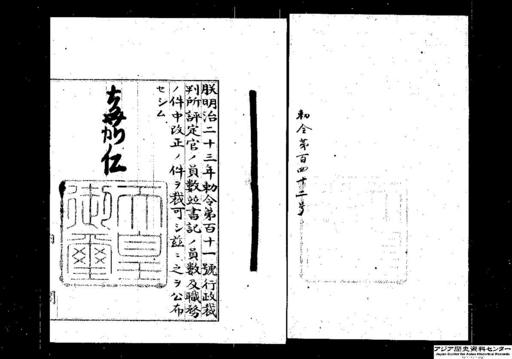 勅令第百四十二号
朕明治二十三年勅令第百十一號行政裁
判所評定官ノ員數竝書記ノ員數及職務
ノ件中改正ノ件ヲ裁可シ茲ニ之ヲ公布
セシム
嘉仁
天皇
御璽
アジア歴史資料センター
Japan Center for Asian Historical Records